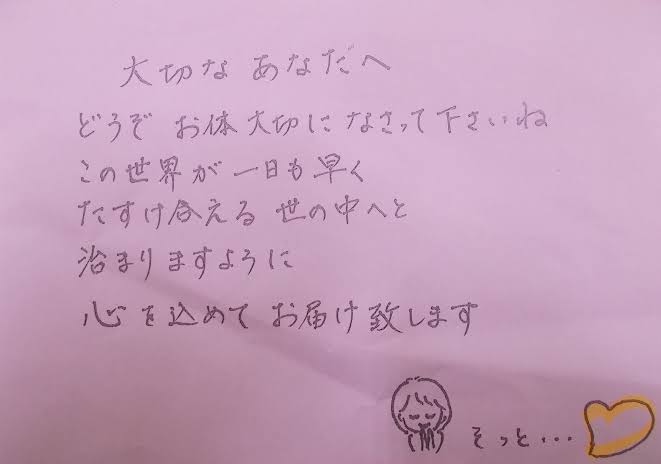 大切な あなだへ
どうぞ お体 大切に なさって 下さいね
この世界が 一日も 早く
たすけ合える 世の中へと
治まりますように
心を込めて お届け致します
そっと・・・